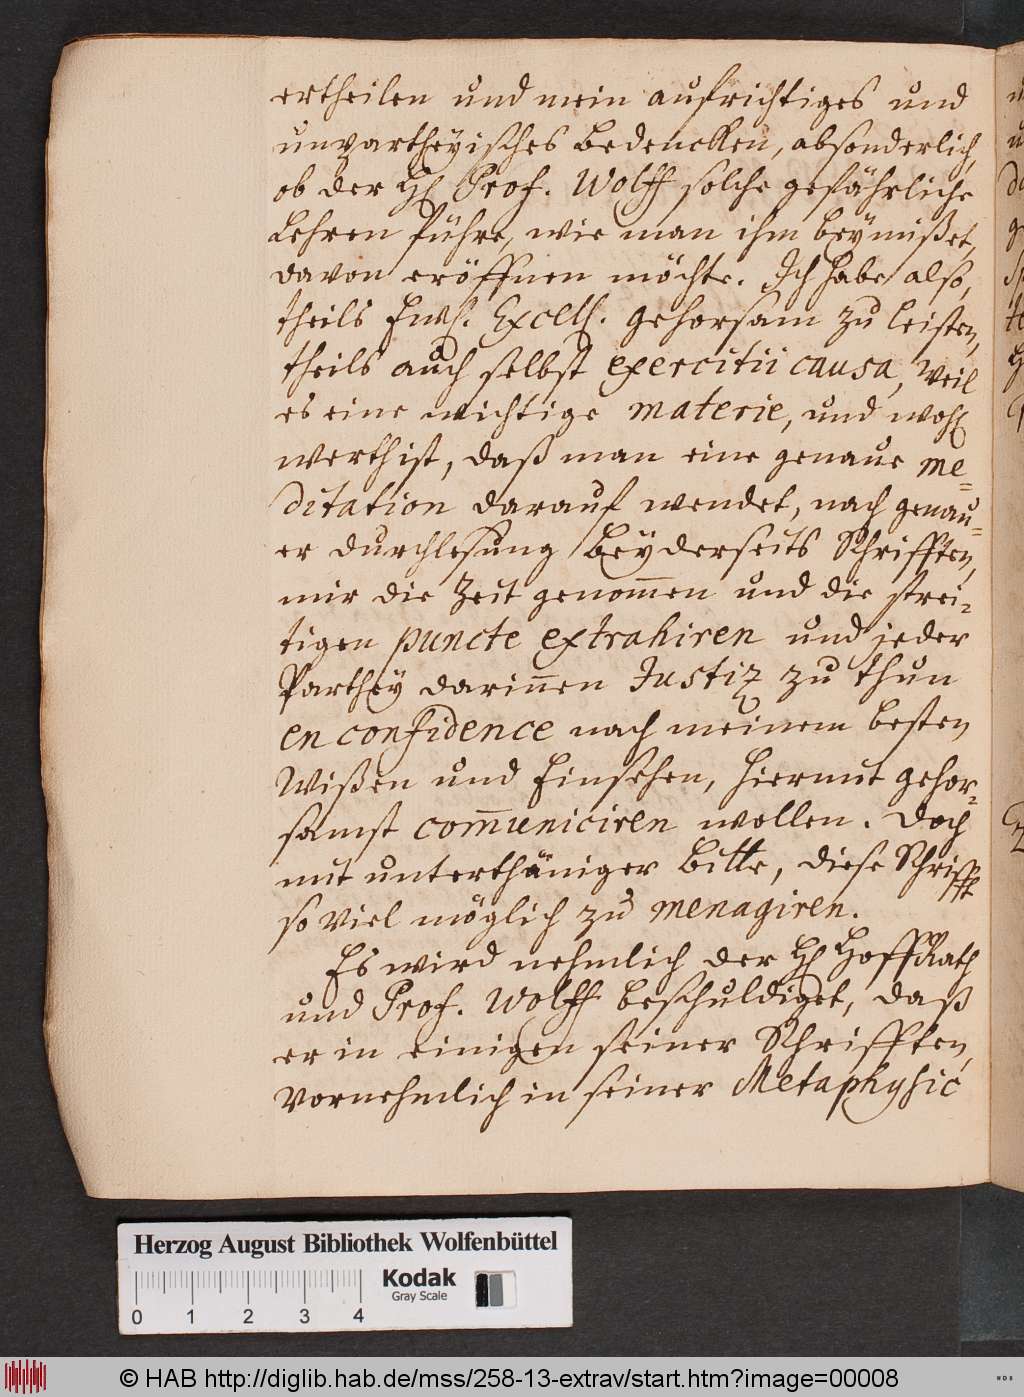 ertheilen und mein aufrichtiges und
unpartheyisches Bedencken, absonderlich,
ob der H. Prof. Wolff solche gefährliche
Lehren führe, wie man ihm beymißet,
davon eröffnen möchte. Ich habe also,
theils Ewh. Excell. gehorsam zu leisten,
theils auch selbst exercitii causa, weil
es eine wichtige materie, und wohl
werth ist, daß man eine genaue me=
ditation darauf wendet, nach genau=
er durchlesung beyderseits Schrifften,
mir die Zeit genom̅en und die strei=
tigen puncte extrahiren und jeder
Parthey darin̅en Justiz zu thun
en confidence nach meinem besten
Wißen und Einsehen, hiermit gehor=
samst com̅uniciren wollen. Doch
mit unterthäniger bitte, diese Schrifft
so viel möglich zu menagiren.
Es wird nehmlich der H. HoffRath
und Prof. Wolff beschuldiget, daß
er in einigen seiner Schrifften,
vornehmlich in seiner Metaphysic
Herzog August Bibliothek Wolfenbüttel
Kodak
Gray Scale
0 1 2 3 4
© HAB http://diglib.hab.de/mss/258-13-extrav/start.htm?image=00008